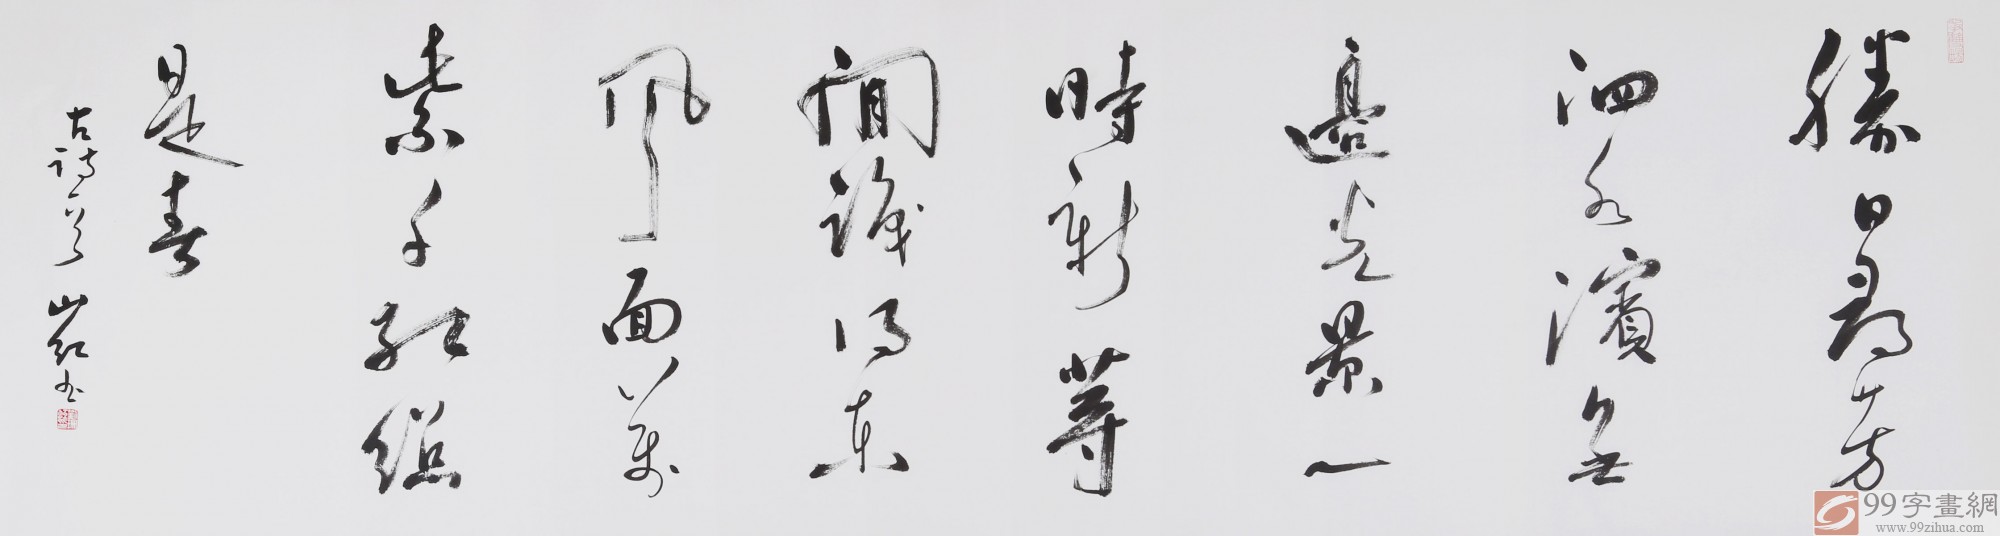 勝日尋芳
泗水濱無
邊光景一
時新等
閒識得東
風面萬
紫千紅總
是春
古詩一首
山紅書
99字畫網
www.99zihua.com